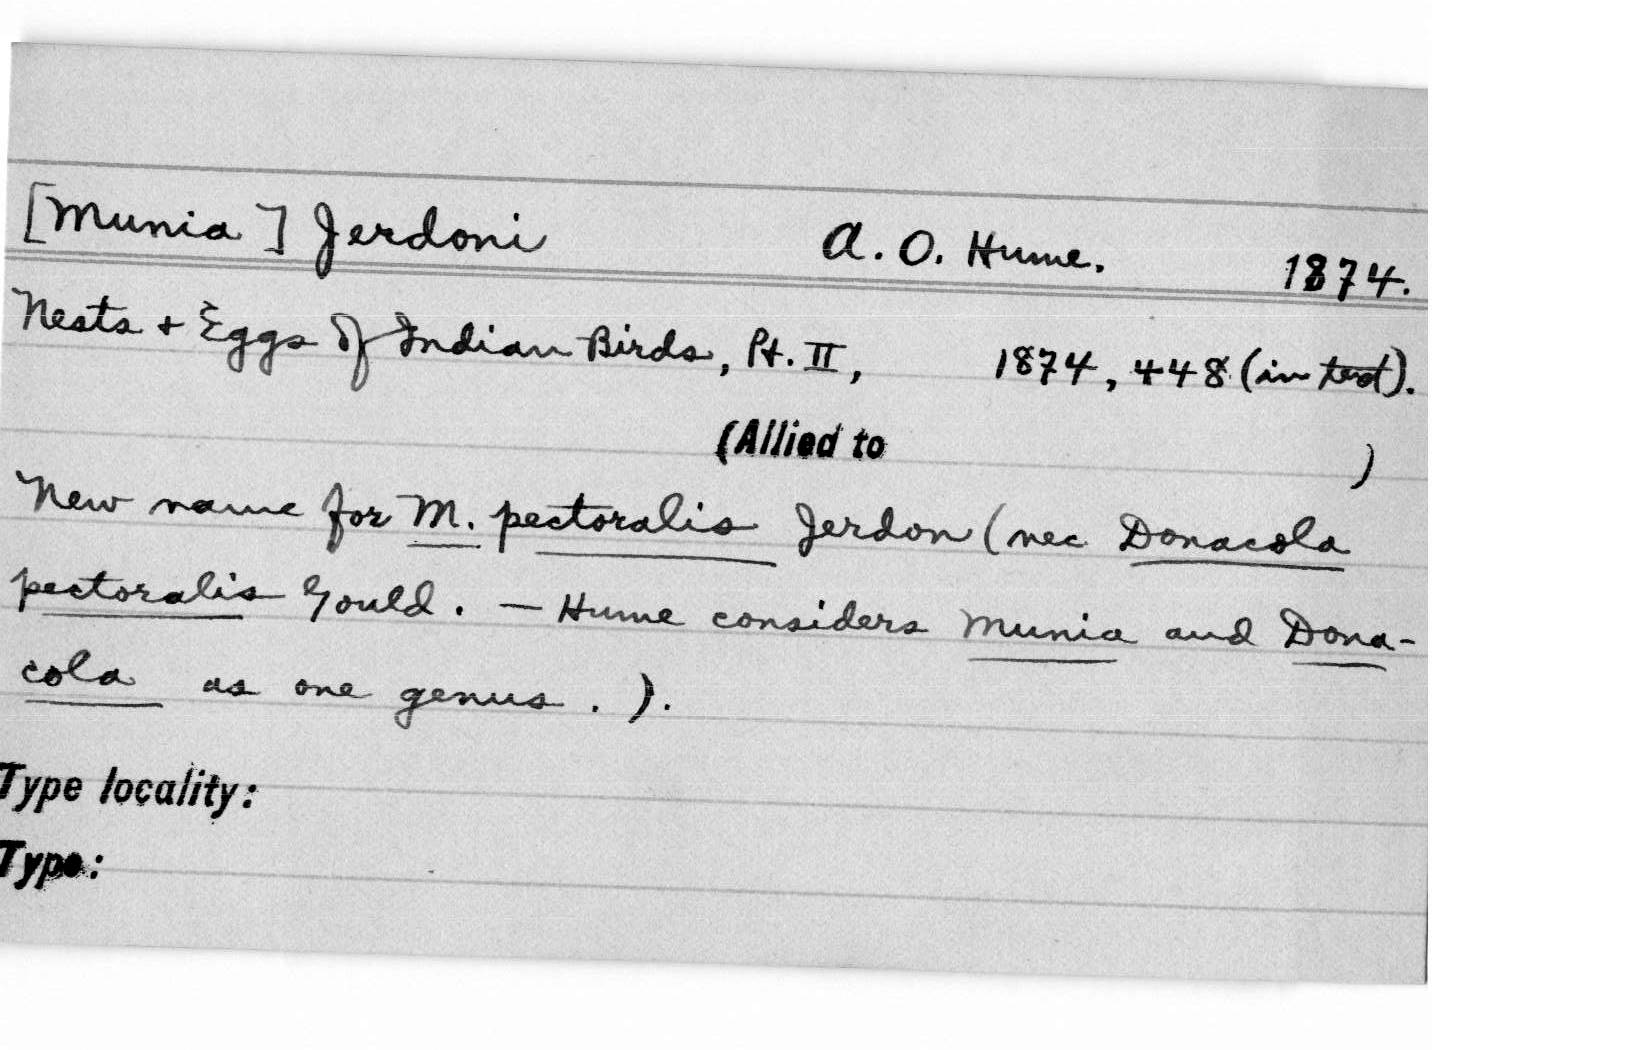 [Munia] Jerdoni A. O. Hume. 1874.
Nests + Eggs of Indian Birds, Pt. II, 1874, 448 (in text).
(Allied to )
New name for M. pectoralis Jerdon (nec Donacola
pectoralis Gould. — Hume considers Munia and Dona-
cola as one genus . ).
Type locality:
Type: